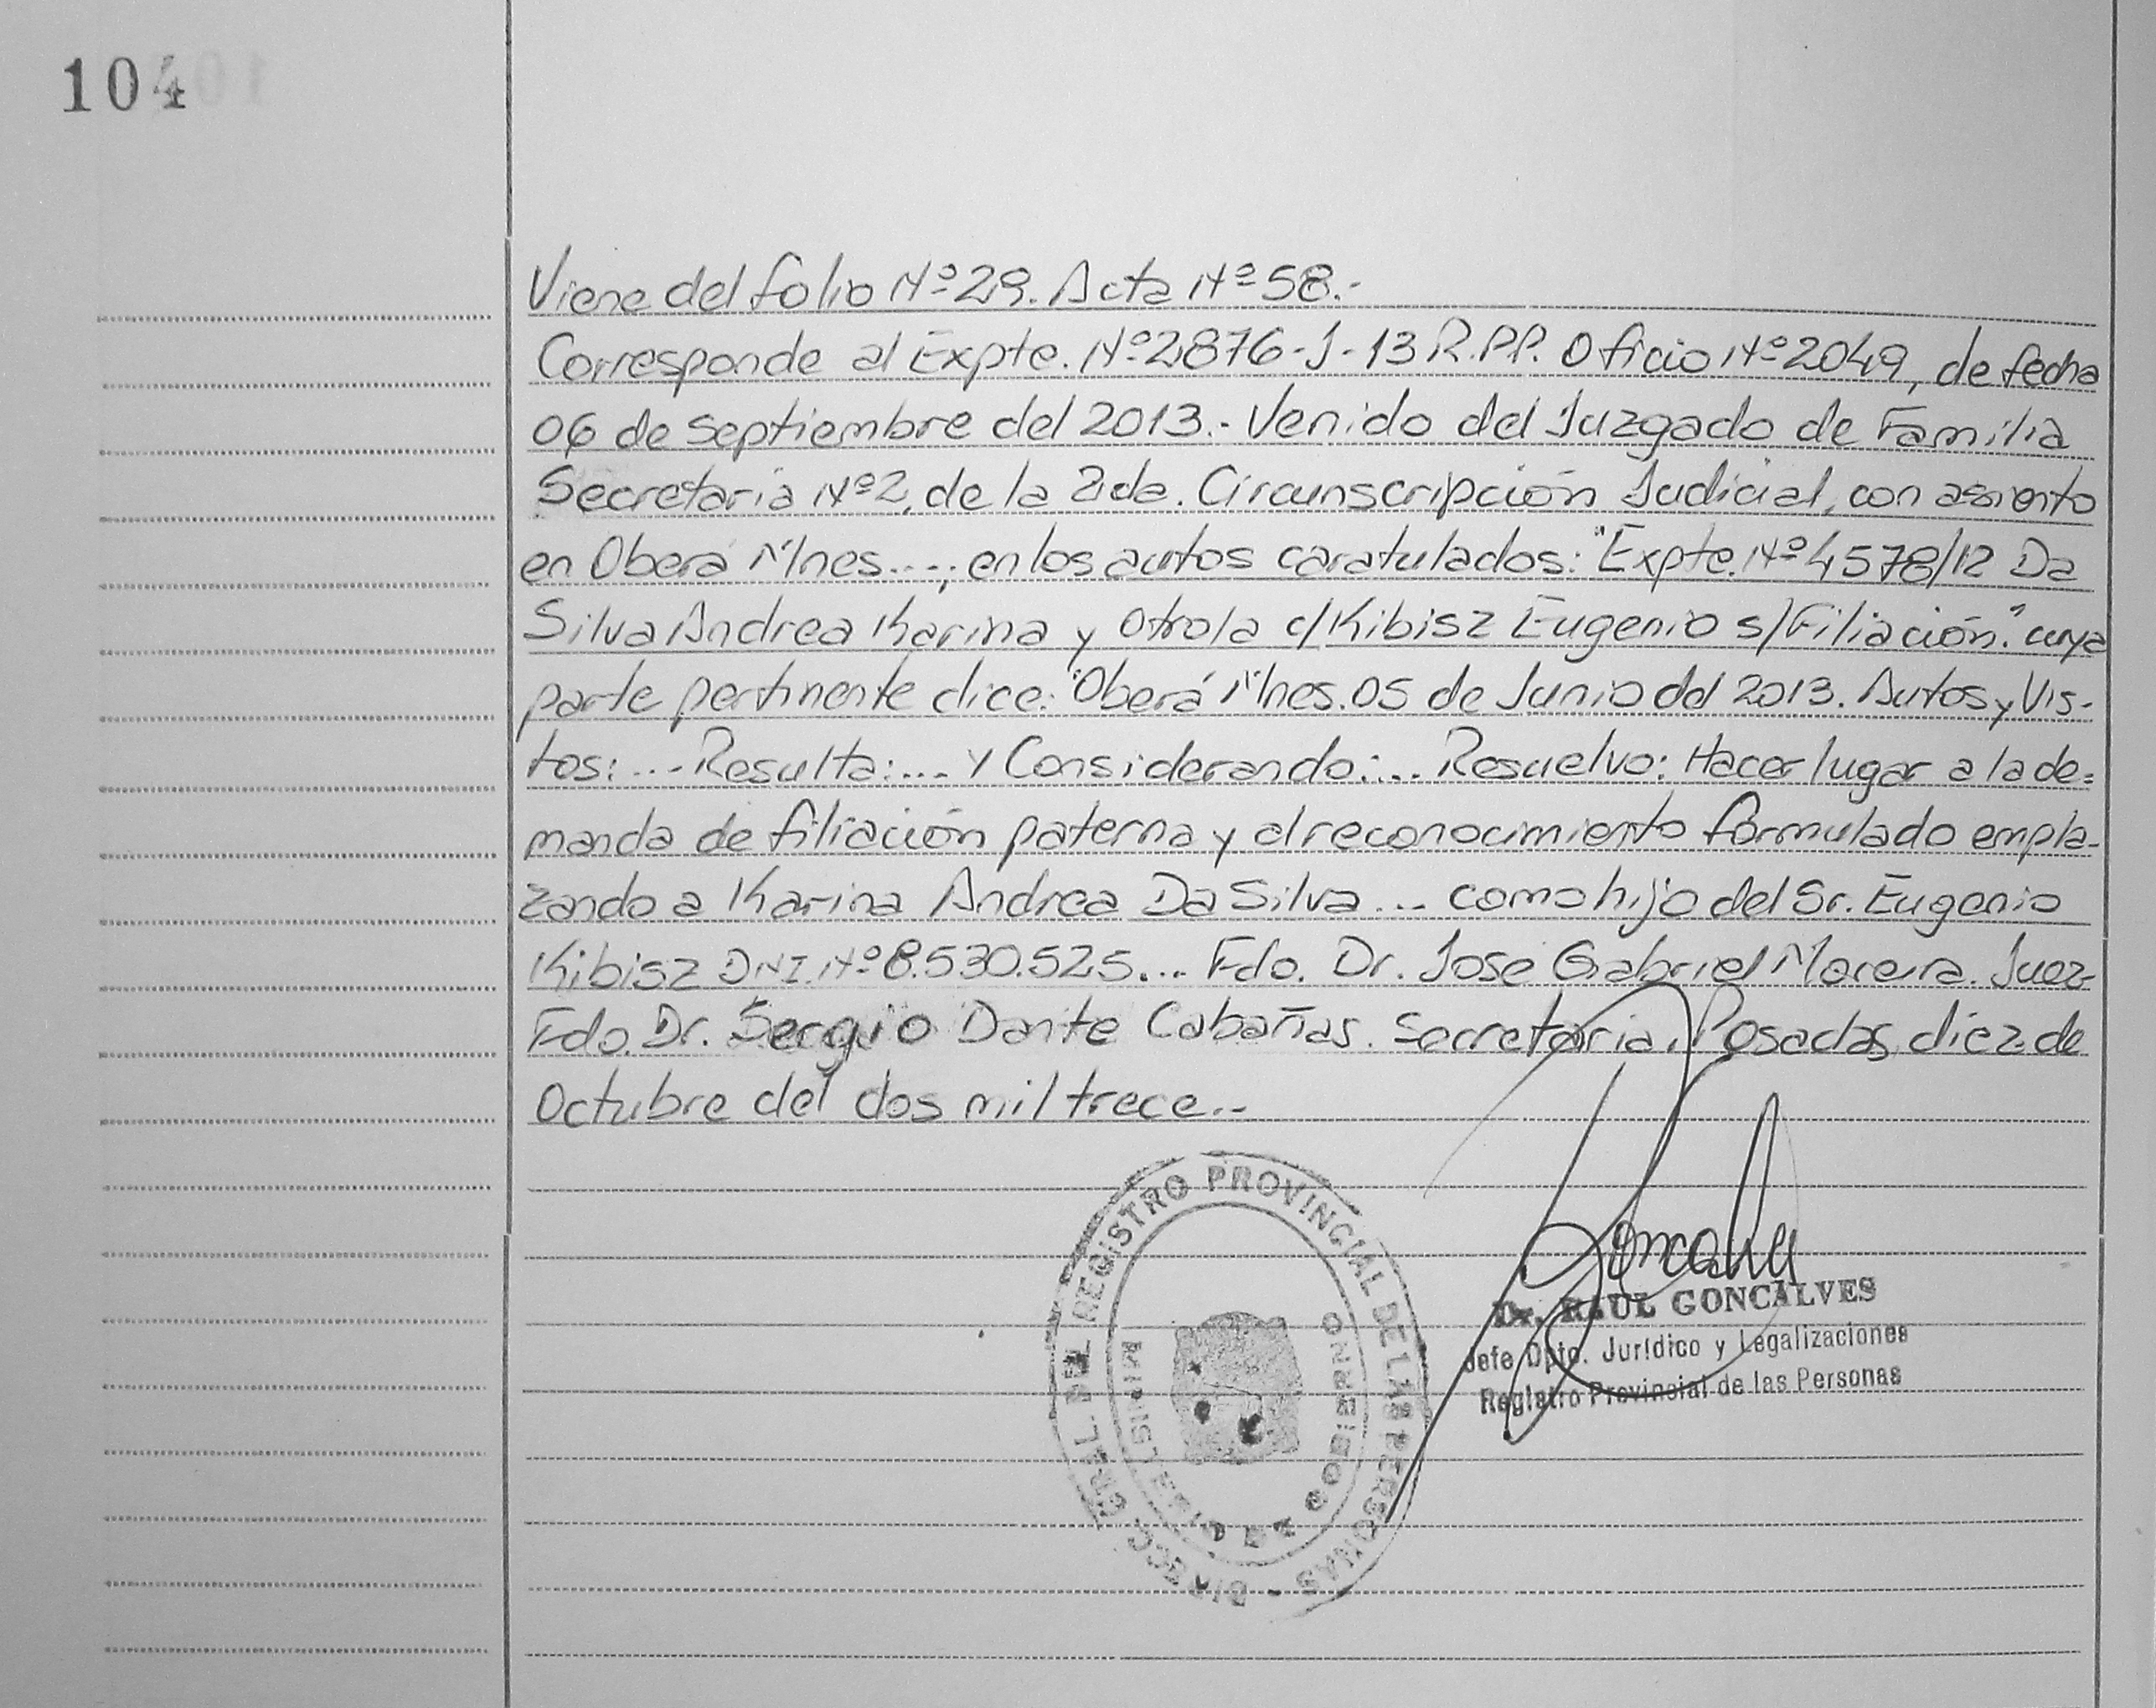 104
Viene del folio Nº 29. Acta Nº 58.-
Corresponde al Expte. Nº 2876-J-13 R.P.P. Oficio Nº 2049, de fecha
06 de Septiembre del 2013.- Venido del Juzgado de Familia
Secretaria Nº 2, de la 2da. Circunscripción Judicial, con asiento
en Oberá Mnes....; en los autos caratulados: "Expte. Nº 4578/12 Da
Silva Andrea Karina y Otro/a c/Kibisz Eugenio s/Filiación." cuya
parte pertinente dice: "Oberá Mnes. 05 de Junio del 2013. Autos y Vis-
tos:... Resulta:.... Y Considerando:... Resuelvo: Hacer lugar a la de=
manda de filiación paterna y al reconocimiento formulado empla-
zando a Karina Andrea Da Silva ... como hijo del Sr. Eugenio
Kibisz DNI. Nº 8.530.525.... Fdo. Dr. Jose Gabriel Moreira. Juez-
Fdo. Dr. Sergio Dante Cabañas. Secretaria. Posadas, diez de
Octubre del dos mil trece.--
DIRECC. GRAL. DEL REGISTRO PROVINCIAL DE LAS PERSONAS -
Dr. RAUL GONCALVES
Jefe Dpto. Jurídico y Legalizaciones
Registro Provincial de las Personas